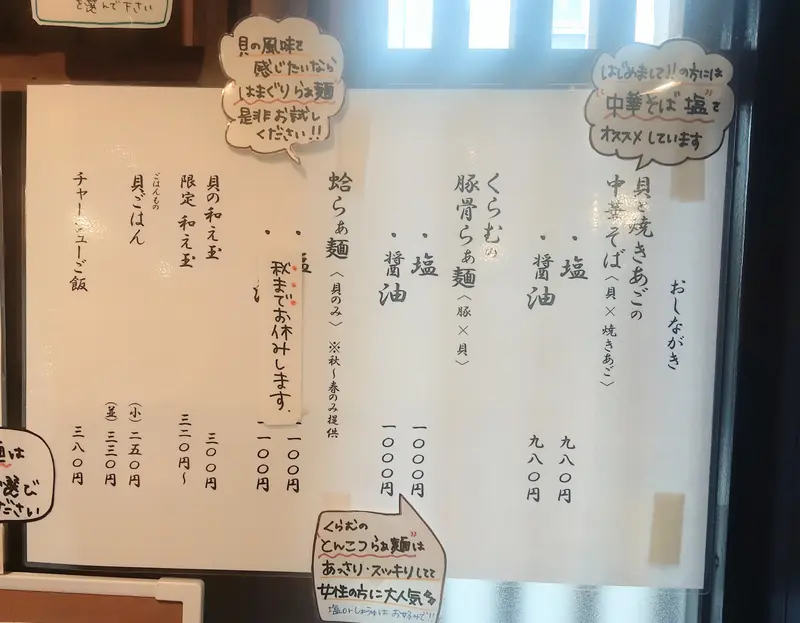 を選んで下さい
おしながき
貝と焼きあごの
中華そば〈貝×焼きあご〉
・塩 九八〇円
・醤油 九八〇円
くらむの
豚骨らぁ麺〈豚×貝〉
・塩 一〇〇〇円
・醤油 一〇〇〇円
蛤らぁ麺〈貝のみ〉※秋〜春のみ提供
・塩 一〇〇〇円
・ 一〇〇円
秋までお休みします。
貝の和え玉 三〇〇円
限定 和え玉 三二〇円〜
ごはんもの
貝ごはん (小)二五〇円
(並)三三〇円
チャーシューご飯 三八〇円
はじめまして!!の方には
"中華そば 塩"を
オススメしています
貝の風味を
感じたいなら
はまぐりらぁ麺
是非お試し
ください!!
くらむの
とんこつらぁ麺は
あっさり・スッキリしてて
女性の方に大人気
塩orしょうゆは お好みで!!
は
選び
ださい